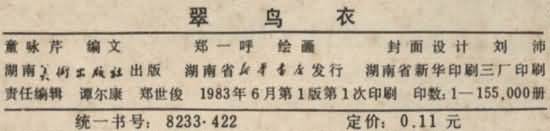 翠鸟衣
童咏芹 编文 郑一呼 绘画 封面设计 刘沛
湖南美术出版社出版 湖南省新华书店发行 湖南省新华印刷三厂印刷
责任编辑 谭尔康 郑世俊 1983年6月第1版第1次印刷 印数:1—155,000册
统一书号:8233·422 定价:0.11元